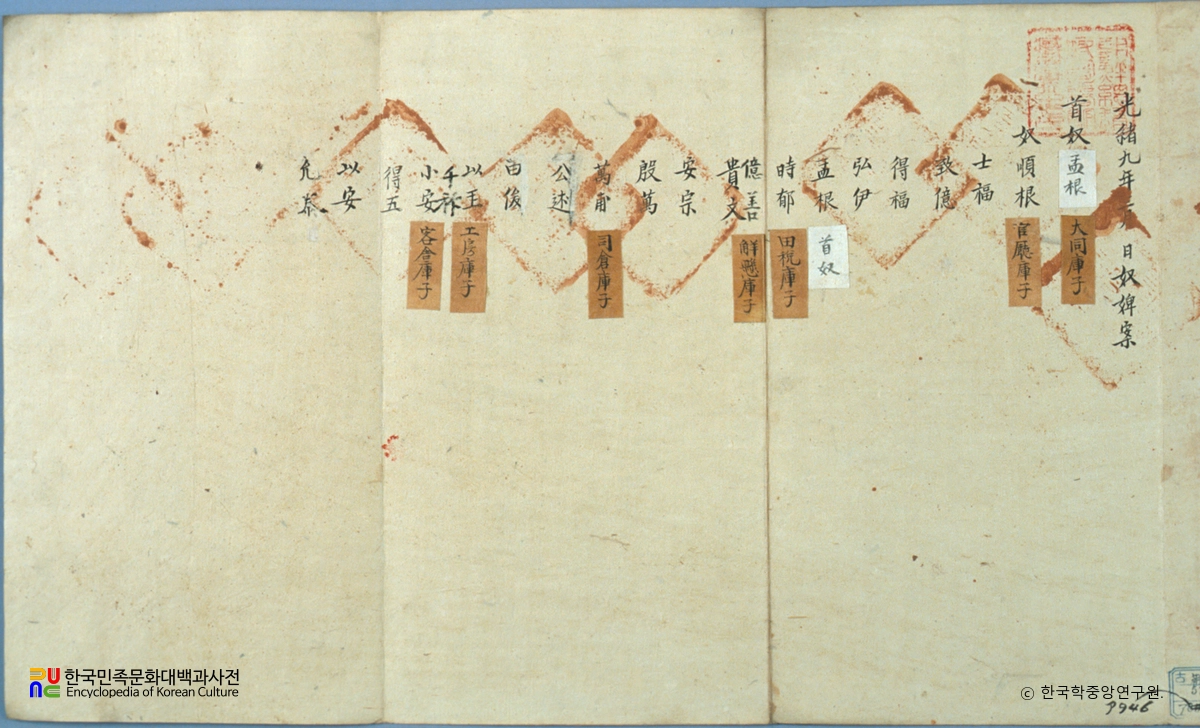 光緖九年 月 日奴婢案
首奴 孟根
大同庫子
奴順根
官廳庫子
士福
致億
得福
弘伊
孟根
首奴
時郁
田稅庫子
億吉
貴文
庫子
安宗
殷萬
萬甫
司倉庫子
公述
由俊
以王
工房庫子
千祚
小安
客舍庫子
得五
以安
允恭
한국민족문화대백과사전
Encyclopedia of Korean Culture
© 한국학중앙연구원.
P946